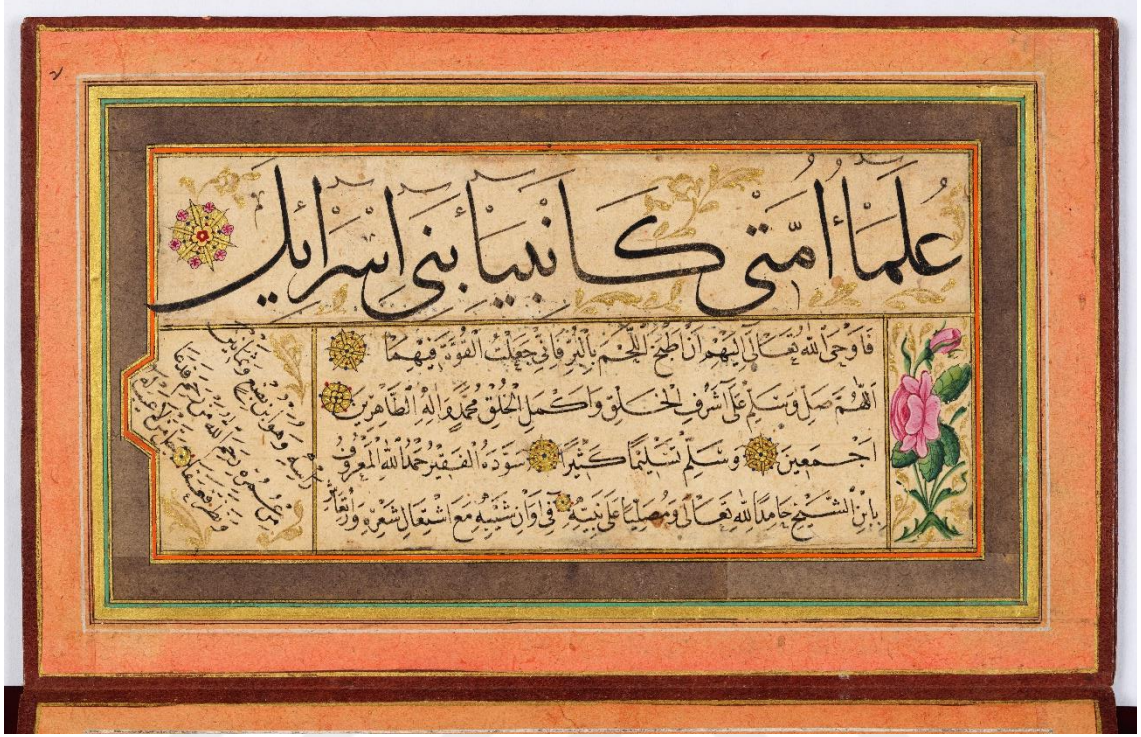 عُلَمَاءُ أُمَّتِي كَأَنْبِيَاءِ بَنِي إِسْرَائِلَ
فَاَوْحَى اللهُ تَعَالَى اِلَيْهِمْ اَنْ اطْبُخِ اللَّحْمَ بِالْبُرِّ فَاِنِّي جَعَلْتُ الْقُوَّةَ فِيهِمَا
اَللّهُمَّ صَلِّ وَسَلِّمْ عَلَى اَشْرَفِ الْخَلْقِ وَاَكْمَلِ الْخُلُقِ مُحَمَّدٍ وَالِهِ الطَّاهِرِينَ
اَجْمَعِينَ وَسَلِّمْ تَسْلِيمًا كَثِيرًا سَوَّدَهُ الْفَقِيرُ حَمْدُ اللهِ الْمَعْرُوفُ
بِابْنِ الشَّيْخِ حَامِدًا لِلّهِ تَعَالَى وَمُصَلِّيًا عَلَى نَبِيِّهِ فِى اَوَانِ شَيْبِهِ مَعَ اشْتِعَالِ شَعْرِهِ وَارْتِعَاشِ
رَأْسِهِ وَهُوَ ابْنُ بِضْعٍ وَثَمَانِينَ
مِنْ عُمُرِهِ رَحِمَ اللهُ مَنْ